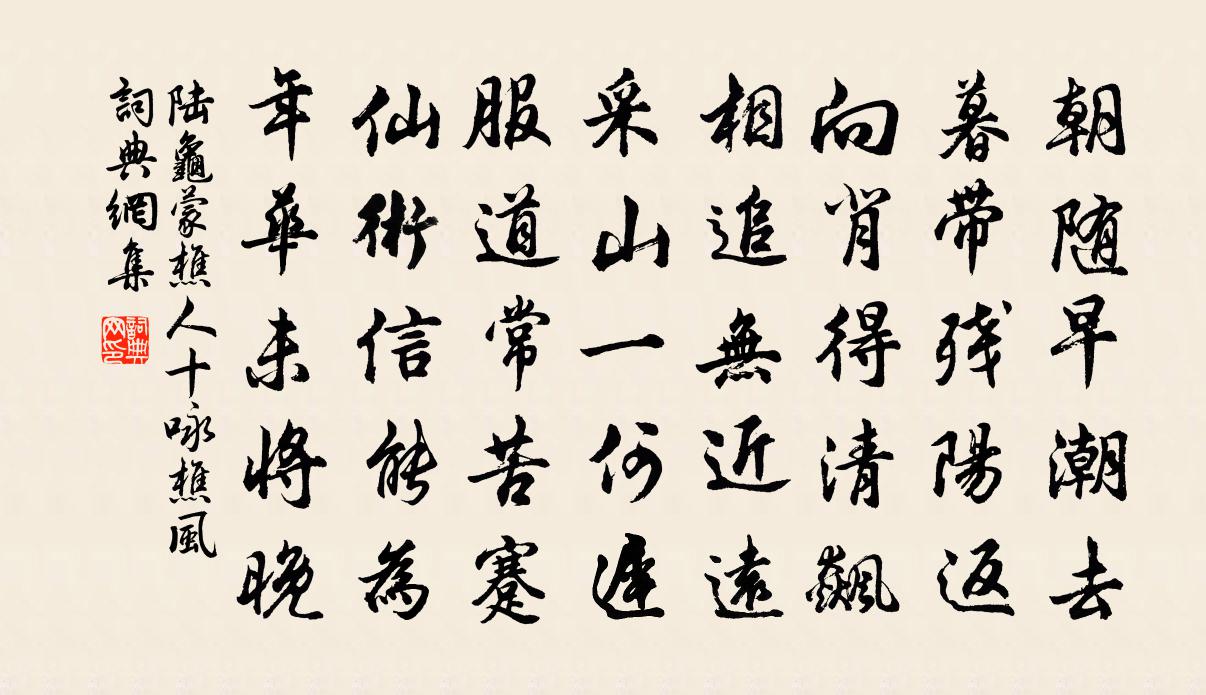 朝随早潮去
暮带残陽返
向肖得清飙
相追無近遠
采山一何遲
服道常苦蹇
仙術信能為
年華未將晚
陆龜蒙樵人十咏樵風
詞典網集
詞典网印